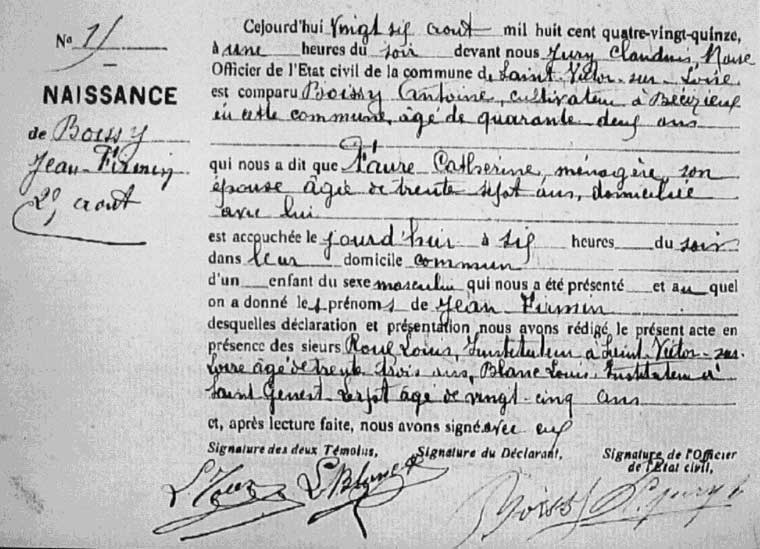 No 15
NAISSANCE
de Boissy
Jean-Firmin
août
Cejourd'hui vingt six août mil huit cent quatre-vingt-quinze,
à heures du soir devant nous Jury Claudius, Maire
Officier de l'Etat civil de la commune de Saint-Victor-sur-Loire
est comparu Boissy Antoine, cultivateur à Bécizieux
en cette commune, âgé de quarante deux ans
qui nous a dit que Faure Catherine, ménagère, son
épouse âgée de trente sept ans, domiciliée
avec lui
est accouchée le jourd'hui à six heures du soir
dans leur domicile commun
d'un enfant du sexe masculin qui nous a été présenté et au quel
on a donné les prénoms de Jean Firmin
desquelles déclaration et présentation nous avons rédigé le présent acte en
présence des sieurs Roue Louis, Instituteur à Saint-Victor-sur-
Loire âgé de trente trois ans, Blanc Louis, Instituteur à
Saint Genest Lerpt âgé de vingt-cinq ans
et, après lecture faite, nous avons signé avec eux
Signature des deux Témoins, Signature du Déclarant, Signature de l'Officier
de l'Etat civil,
L. Blanc Boissy C. Jury